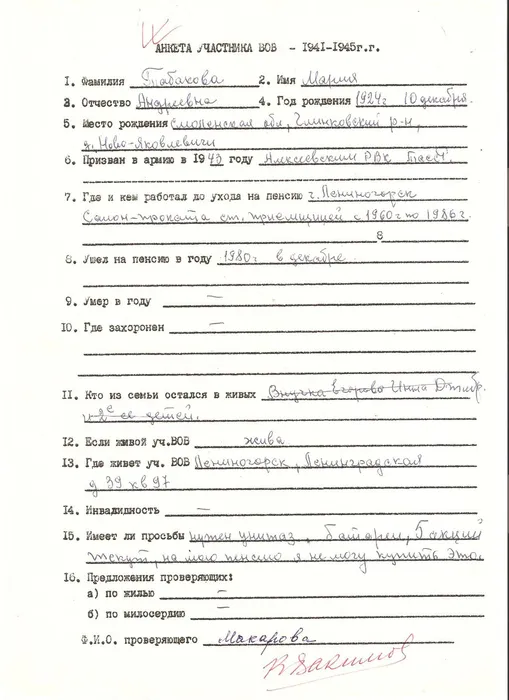 АНКЕТА УЧАСТНИКА ВОВ - 1941-1945г.г.
1. Фамилия Табакова 2. Имя Мария
3. Отчество Андреевна 4. Год рождения 1924г 10 декабря.
5. Место рождения Смоленская обл, Глинковский р-н,
д. Ново-Яковлевичи
6. Призван в армию в 1943 году РВК ТАССР.
7. Где и кем работал до ухода на пенсию г. Лениногорск
Салон-проката ст. приемщицей с 1960г по 1986г.
8
8. Ушел на пенсию в году 1980г в декабре
9. Умер в году —
10. Где захоронен —
11. Кто из семьи остался в живых Внучка Инна
и 2е ее детей.
12. Если живой уч.ВОВ жива
13. Где живет уч. ВОВ Лениногорск, Ленинградская
д 39 кв 97
14. Инвалидность —
15. Имеет ли просьбы нужен унитаз, батареи,
текут, на мою пенсию я не могу купить это.
16. Предложения проверяющих:
а) по жилью —
б) по милосердию —
Ф.И.О. проверяющего Макарова